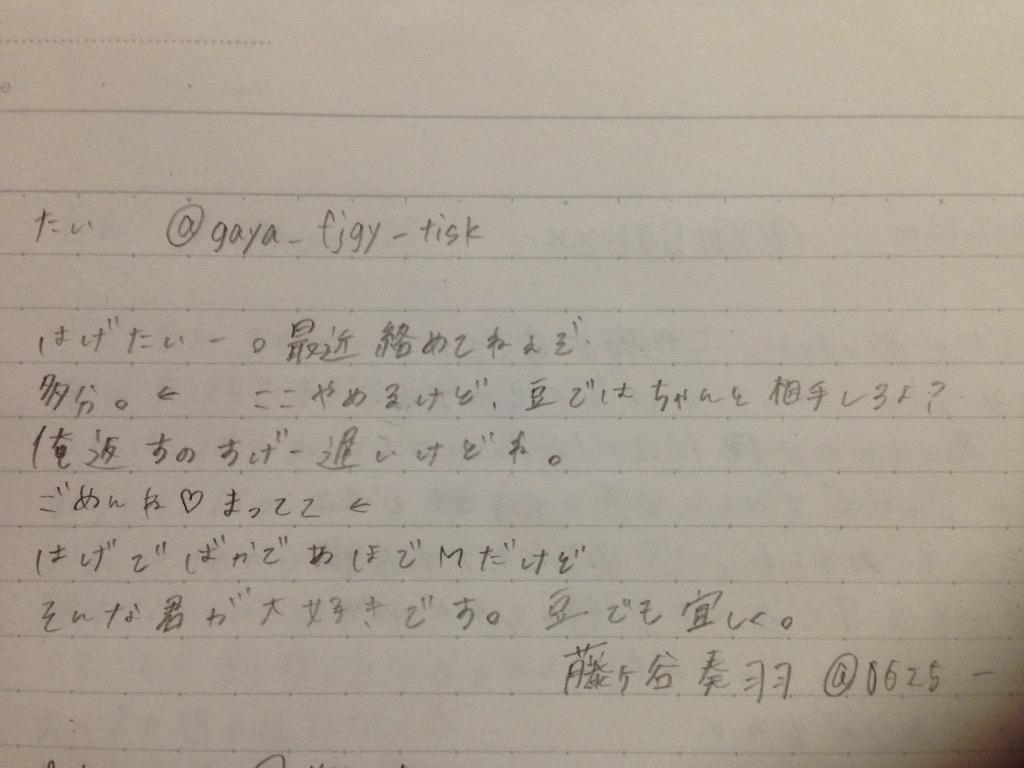 たい @gaya_fjgy_tisk
はげたいー。最近絡めてねぇぞ
多分。← ここやめるけど、豆ではちゃんと相手しろよ?
俺返すのすげー遅いけどね。
ごめんね♡まってて←
はげでばかであほでMだけど
そんな君が大好きです。豆でも宜しく。
藤ヶ谷奏羽 @0625ー